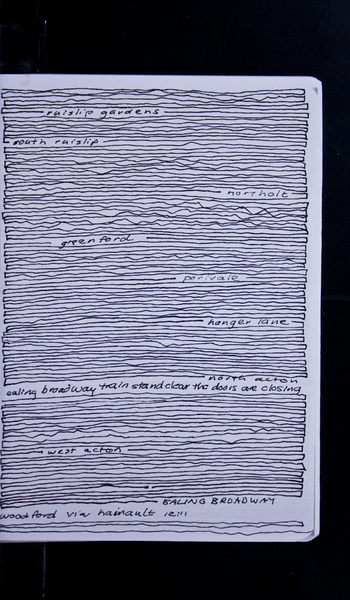 ruislip gardens
south ruislip
northolt
greenford
perivale
hanger lane
north acton
ealing broadway train stand clear the doors are closing
west acton
EALING BROADWAY
woodford via hainault 12:11